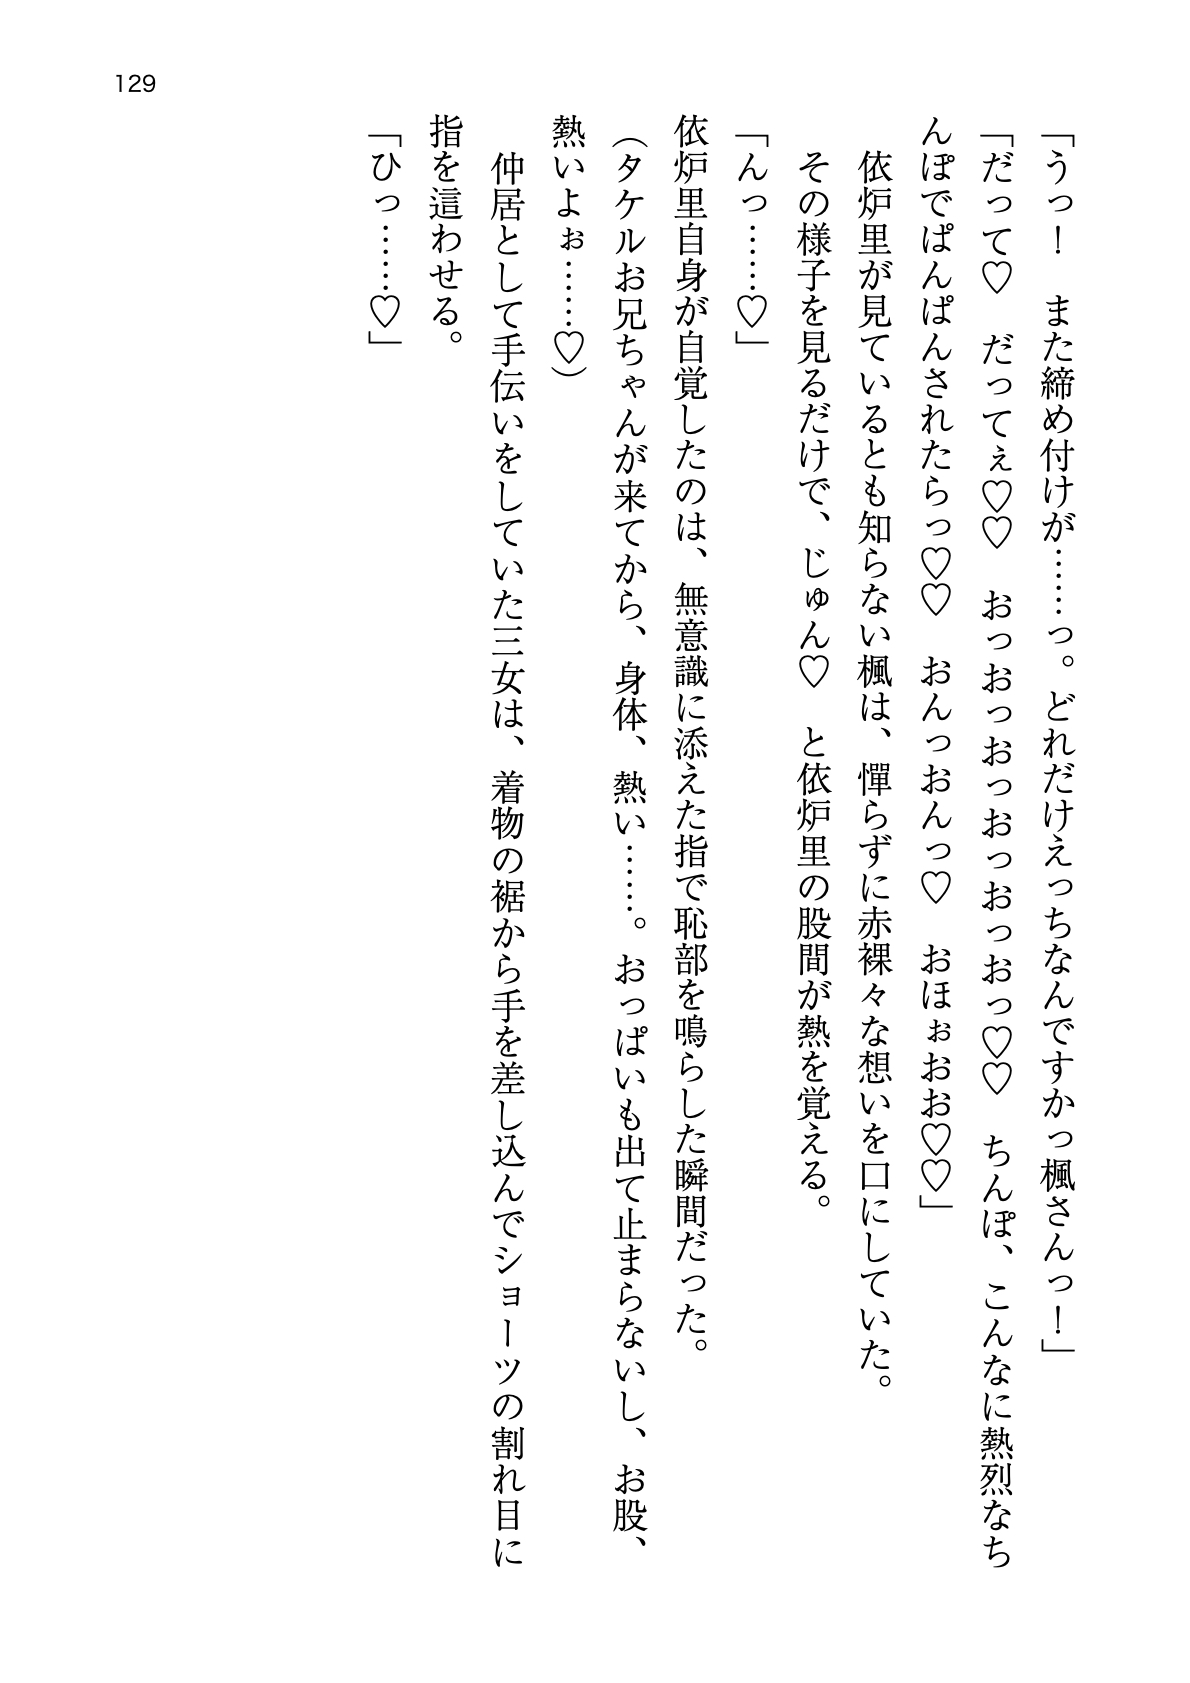 129
「うっ！　また締め付けが……っ。どれだけえっちなんですかっ楓さんっ！」
「だって♡　だってぇ♡♡　おっおっおっおっおっおっ♡♡　ちんぽ、こんなに熱烈なち
んぽでぱんぱんされたらっ♡♡　おんっおんっ♡　おほぉおお♡♡」
　依炉里が見ているとも知らない楓は、憚らずに赤裸々な想いを口にしていた。
　その様子を見るだけで、じゅん♡　と依炉里の股間が熱を覚える。
「んっ……♡」
依炉里自身が自覚したのは、無意識に添えた指で恥部を鳴らした瞬間だった。
（タケルお兄ちゃんが来てから、身体、熱い……。おっぱいも出て止まらないし、お股、
熱いよぉ……♡）
　仲居として手伝いをしていた三女は、着物の裾から手を差し込んでショーツの割れ目に
指を這わせる。
「ひっ……♡」